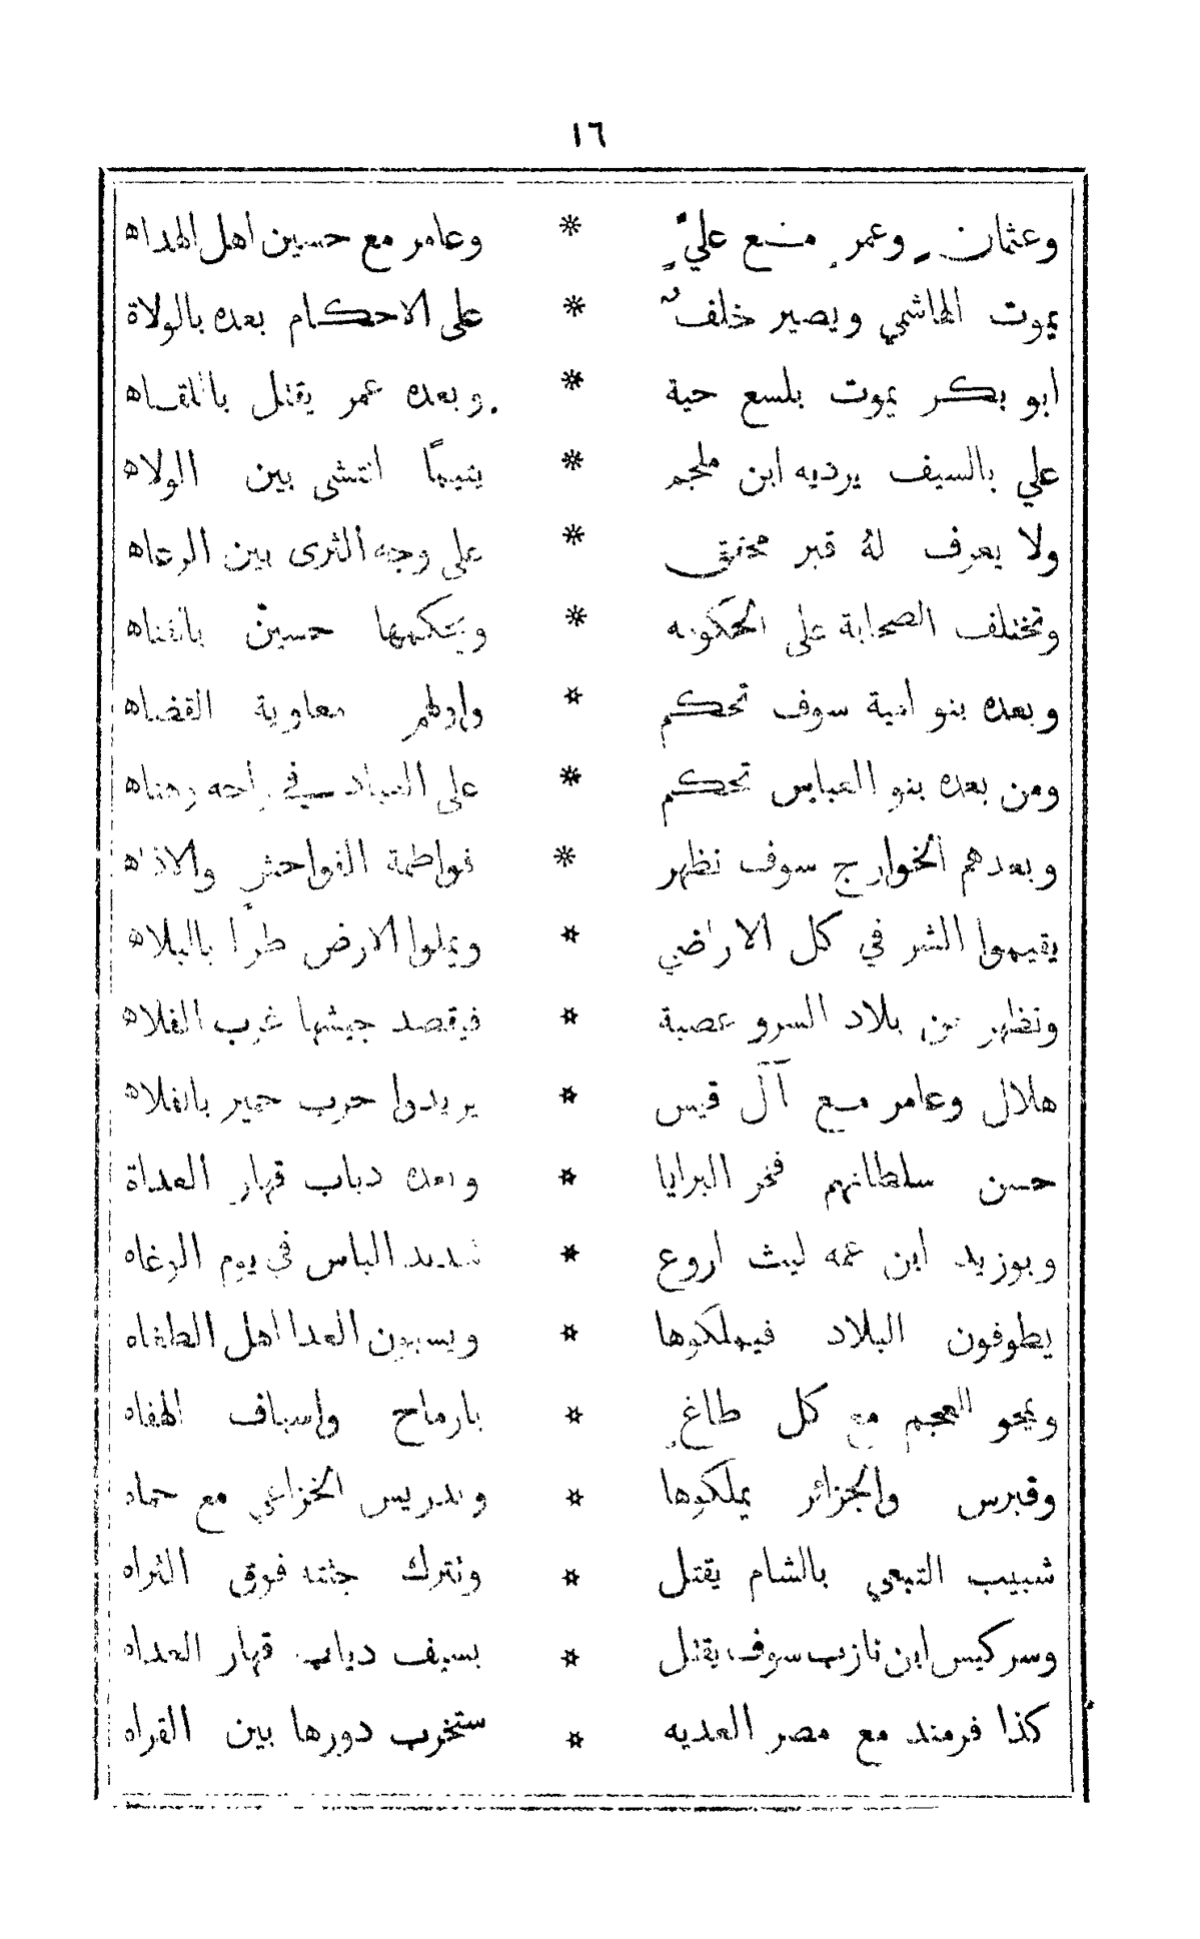 ١٦
وعثمانٍ وعمرٍ مع عليٍّ * وعامر مع حسين اهل الهداه
يموت الهاشمي ويصير خلفٌ * على الاحكام بعده بالولاة
ابو بكر يموت بلسع حية * وبعده عمر يقتل بالقاه
علي بالسيف يرديه ابن ملجم * يتيمًا انتشى بين الولاه
ولا يعرف لهُ قبر محقق * على وجه الثرى بين الرعاه
وتختلف الصحابة على الحكومه * ويحكمها حسينٌ بالقناه
وبعده بنو امية سوف تحكم * واولهم معاوية القضاه
ومن بعده بنو العباس تحكم * على العباد في راحه وهناه
وبعدهم الخوارج سوف تظهر * فواطمة الفواحش والاذاه
يقيموا الشر في كل الاراضي * ويملوا الارض طرًا بالبلاه
وتظهر من بلاد السرو عصبة * فيقصد جيشها غرب الفلاه
هلال وعامر مع آل قيس * يريدوا حرب حمير بالفلاه
حسن سلطانهم فخر البرايا * وبعده دياب قهار العداة
وبوزيد ابن عمه ليث اروع * شديد الباس في يوم الوغاه
يطوفون البلاد فيملكوها * ويسبون العدا اهل الطغاه
ويمحو العجم مع كل طاغٍ * بارماح واسياف الهفاه
وقبرس والجزائر يملكوها * وبدريس الخزاعي مع حماه
شبيب التبعي بالشام يقتل * وتترك جثته فوق الثراه
وسركيس ابن نازب سوف يقتل * بسيف دياب قهار العداه
كذا فرمند مع مصر العديه * ستخرب دورها بين القراه